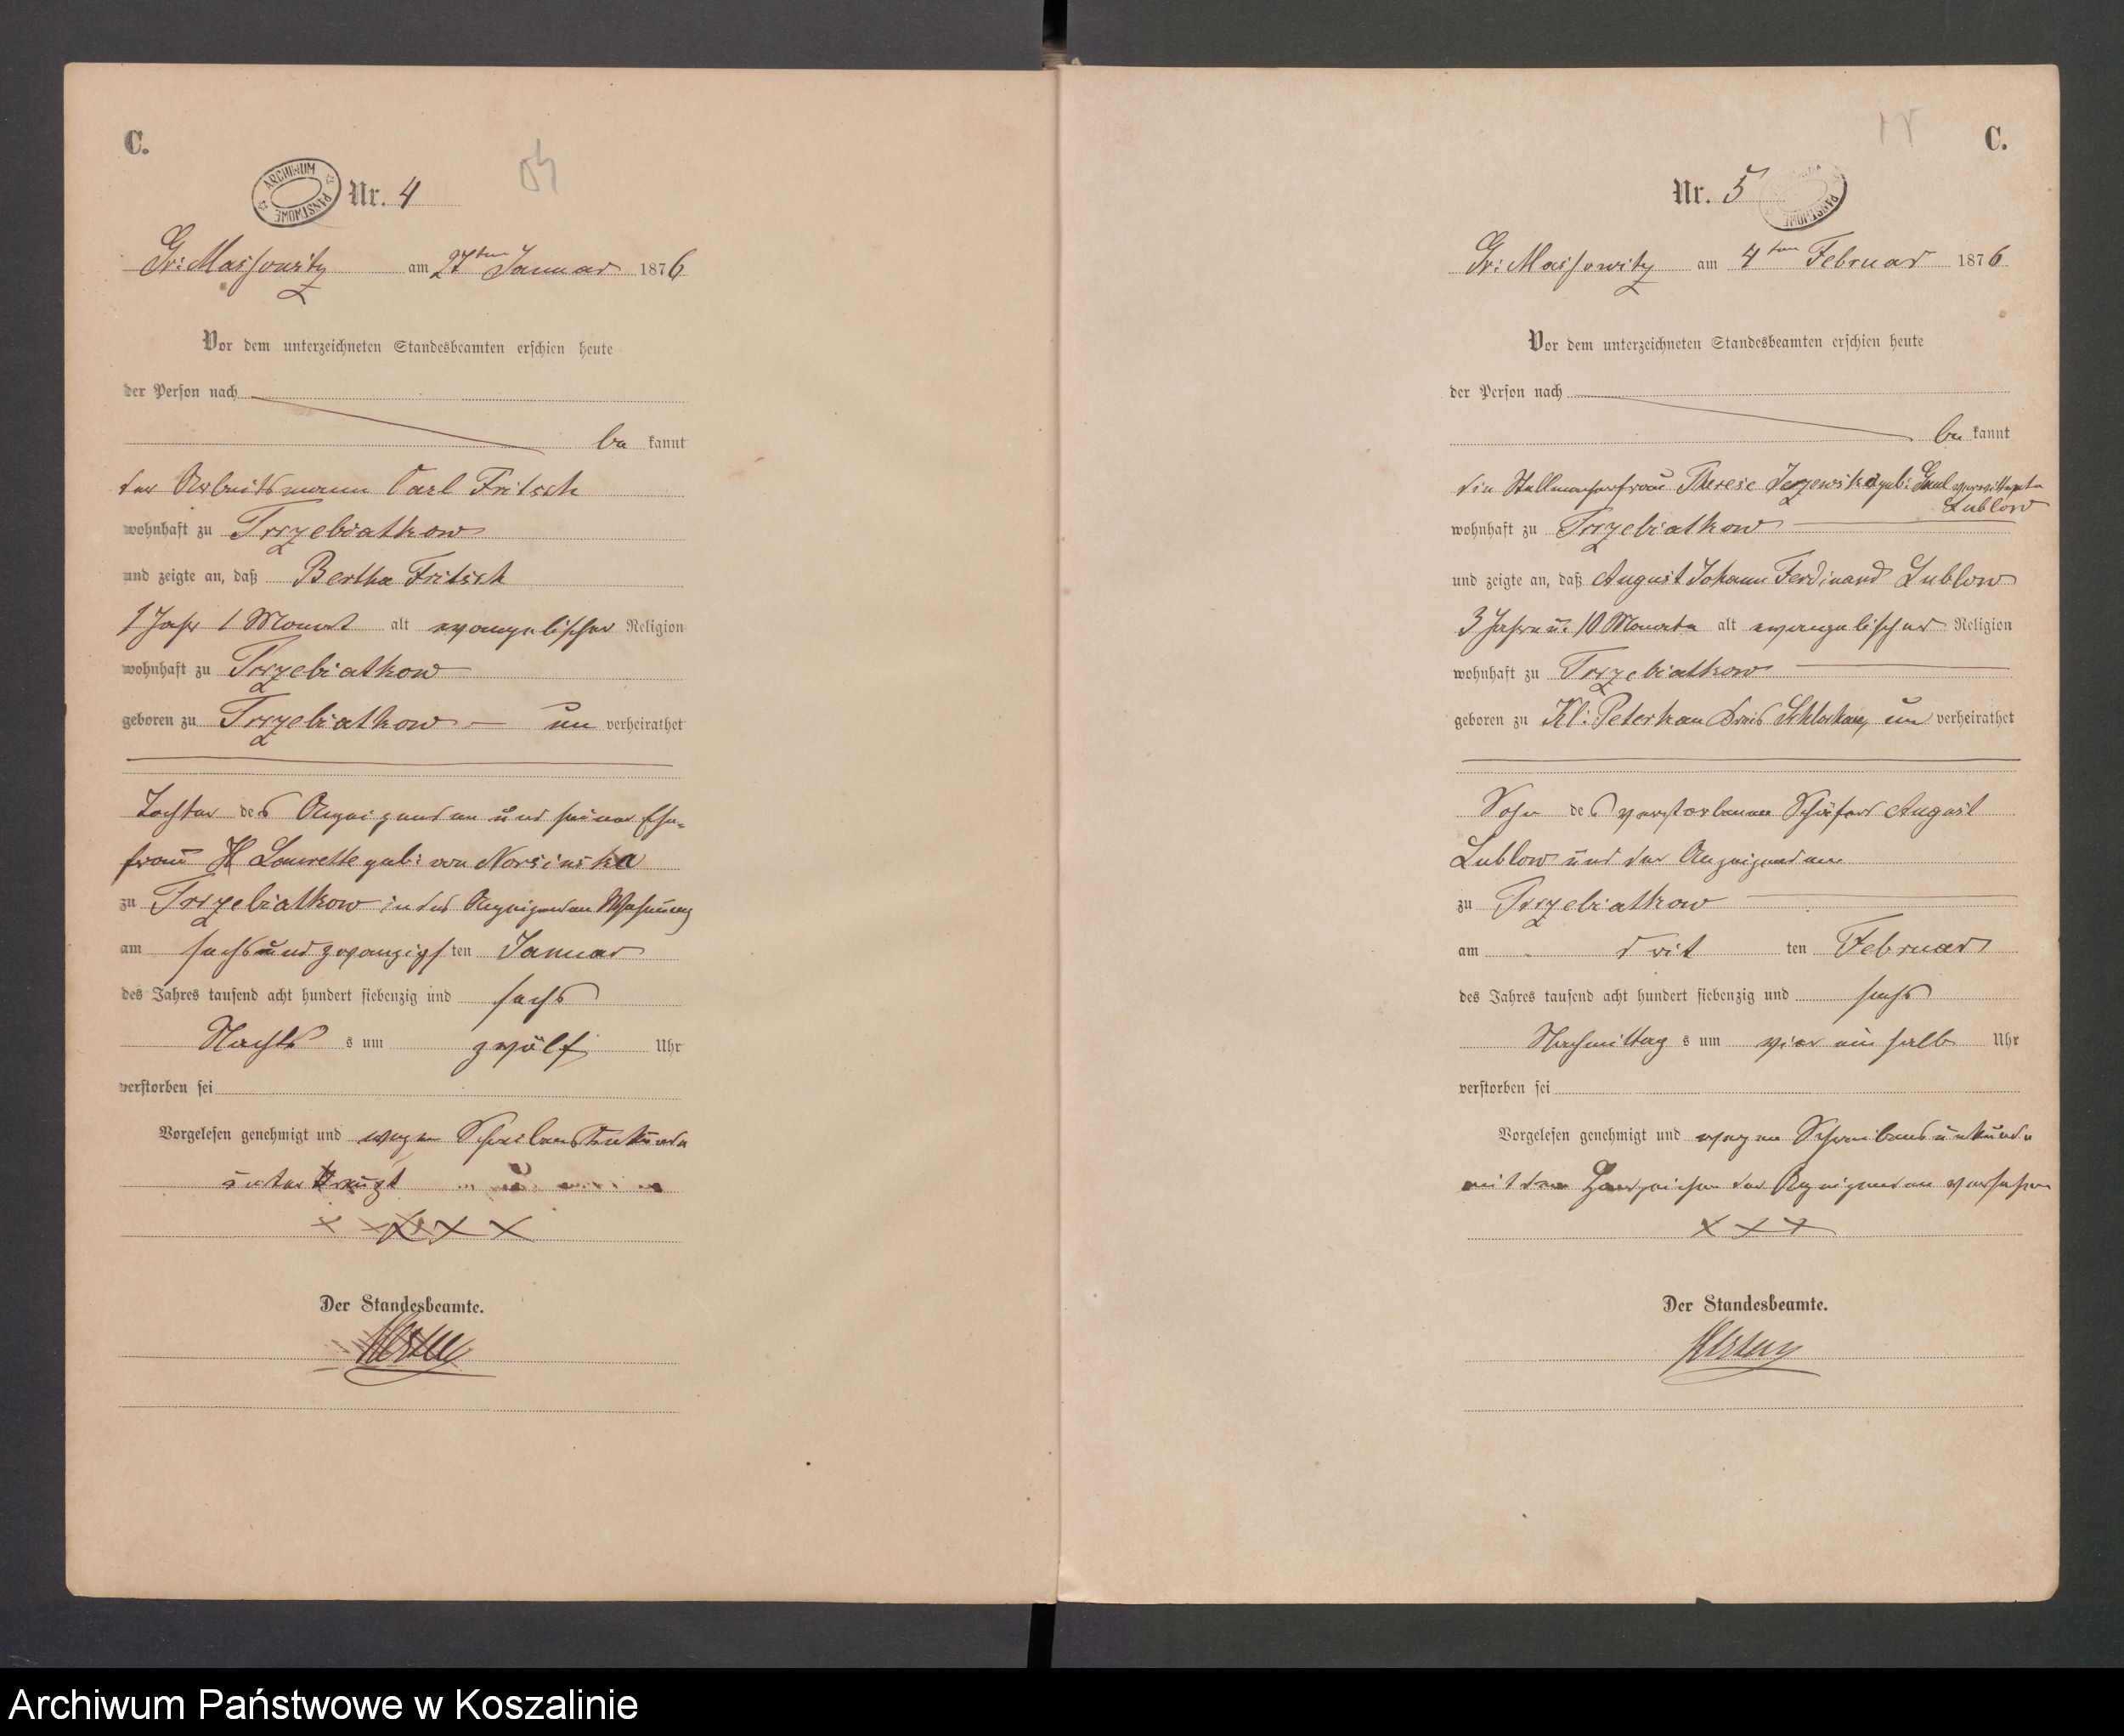 C.
ARCHIWUM PAŃSTWOWE
Nr. 4
Gr: Massowitz am 27ten Januar 1876
Vor dem unterzeichneten Standesbeamten erschien heute
der Person nach
be kannt
der Arbeitsmann Carl Fritsch
wohnhaft zu Trzebiatkow
und zeigte an, daß Bertha Fritsch
1 Jahr 1 Monat alt evangelischer Religion
wohnhaft zu Trzebiatkow
geboren zu Trzebiatkow un verheirathet
Tochter des Anzeigenden und seiner Ehe-
frau Laurette geb: von Norsinska
zu Trzebiatkow in des Anzeigenden Wohnung
am sechsundzwanzigsten Januar
des Jahres tausend acht hundert siebenzig und sechs
Nachts s um zwölf Uhr
verstorben sei
Vorgelesen genehmigt und wegen Schreibensunkunde
unterkreuzt
x x x x x
Der Standesbeamte.
C.
Nr. 5
ARCHIWUM PAŃSTWOWE
Gr: Massowitz am 4ten Februar 1876
Vor dem unterzeichneten Standesbeamten erschien heute
der Person nach
be kannt
die Stellmacherfrau Therese Jezewska geb: verwittwete
Lublow
wohnhaft zu Trzebiatkow
und zeigte an, daß August Johann Ferdinand Lublow
3 Jahre u. 10 Monate alt evangelischer Religion
wohnhaft zu Trzebiatkow
geboren zu Kl: Peterkau Kreis Schlochau, un verheirathet
Sohn des verstorbenen Schäfers August
Lublow und der Anzeigenden
zu Trzebiatkow
am drit ten Februar
des Jahres tausend acht hundert siebenzig und sechs
Nachmittag s um vier ein halb Uhr
verstorben sei
Vorgelesen genehmigt und wegen Schreibensunkunde
mit dem Handzeichen der Anzeigenden versehen
x x x
Der Standesbeamte.
Archiwum Państwowe w Koszalinie